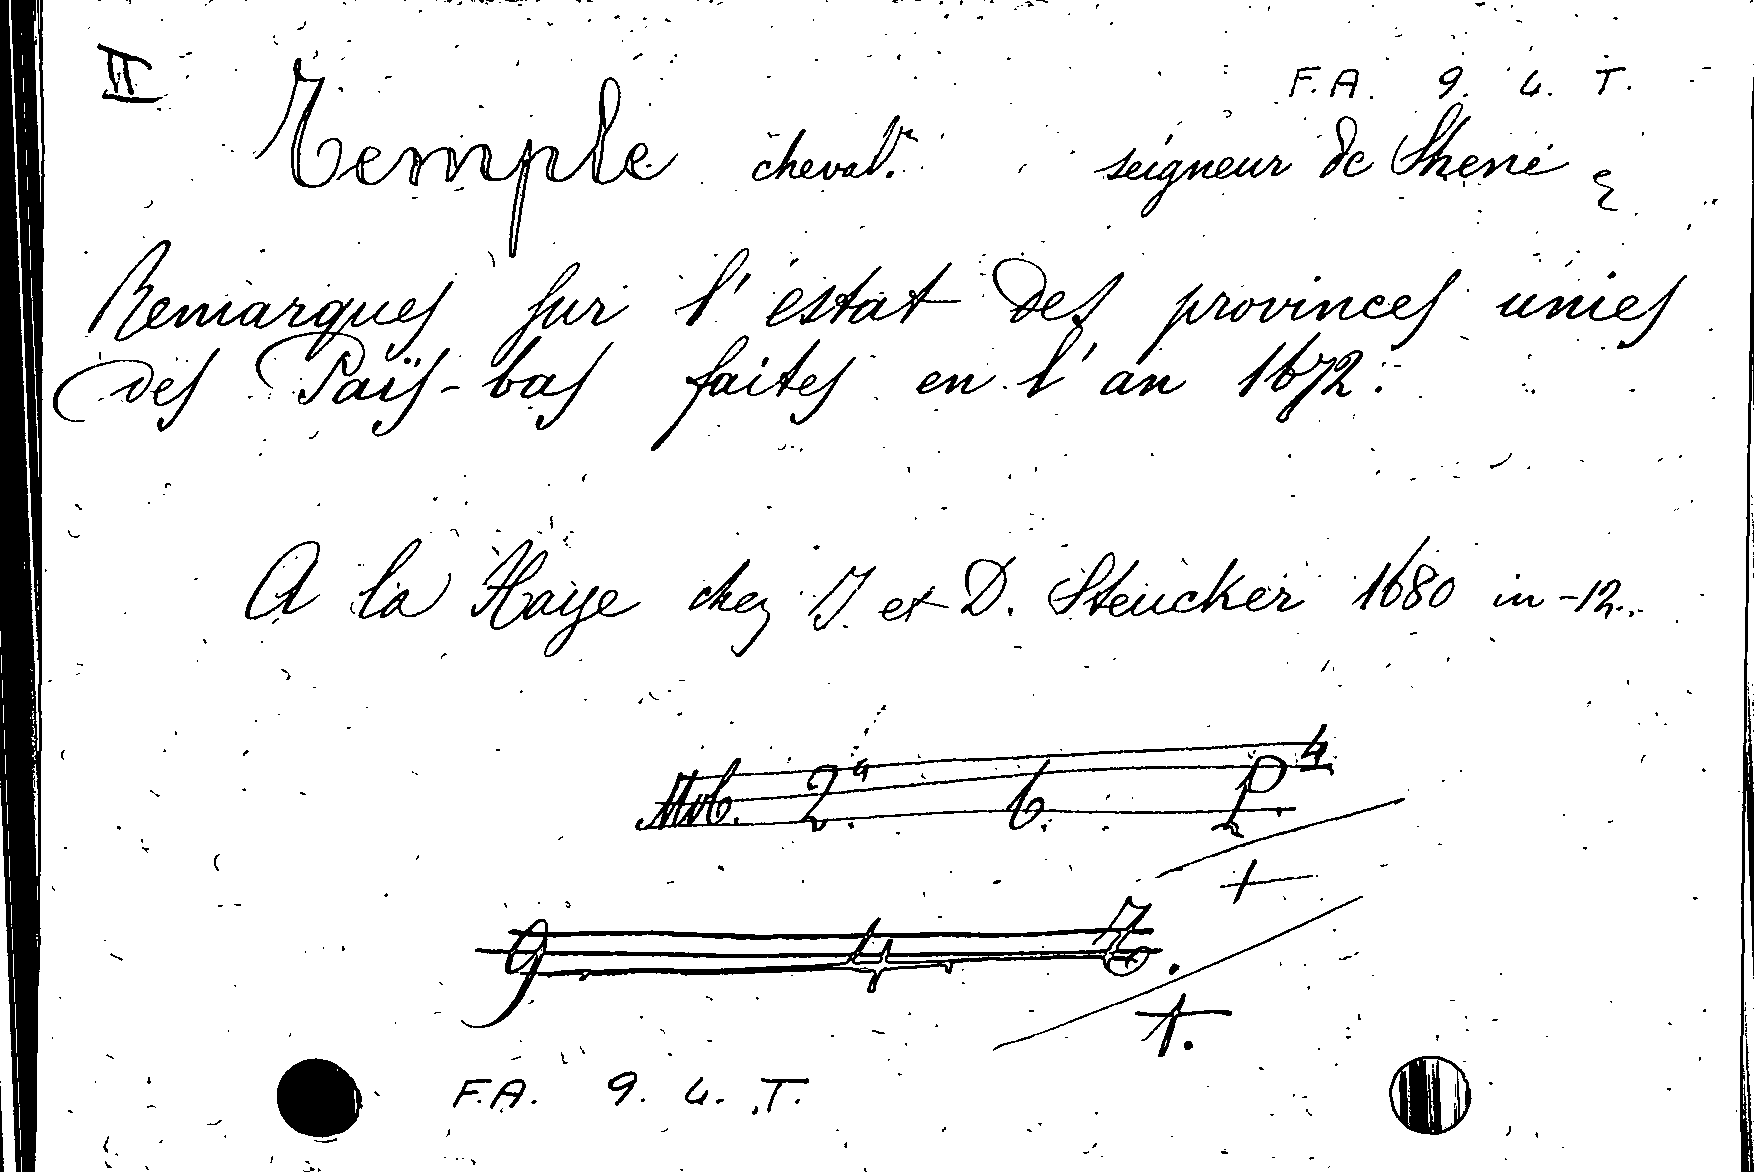 II
F.A. 9. 4. T.
Temple cheval.r seigneur de Shene
Remarques sur l'estat des provinces unies
des Païs-bas faites en l'an 1672.
A la Haye chez J. et D. Steucker 1680 in-12.
2.a 6. P.4
+
9. 4. 7.
1.
F.A. 9. 4. T.